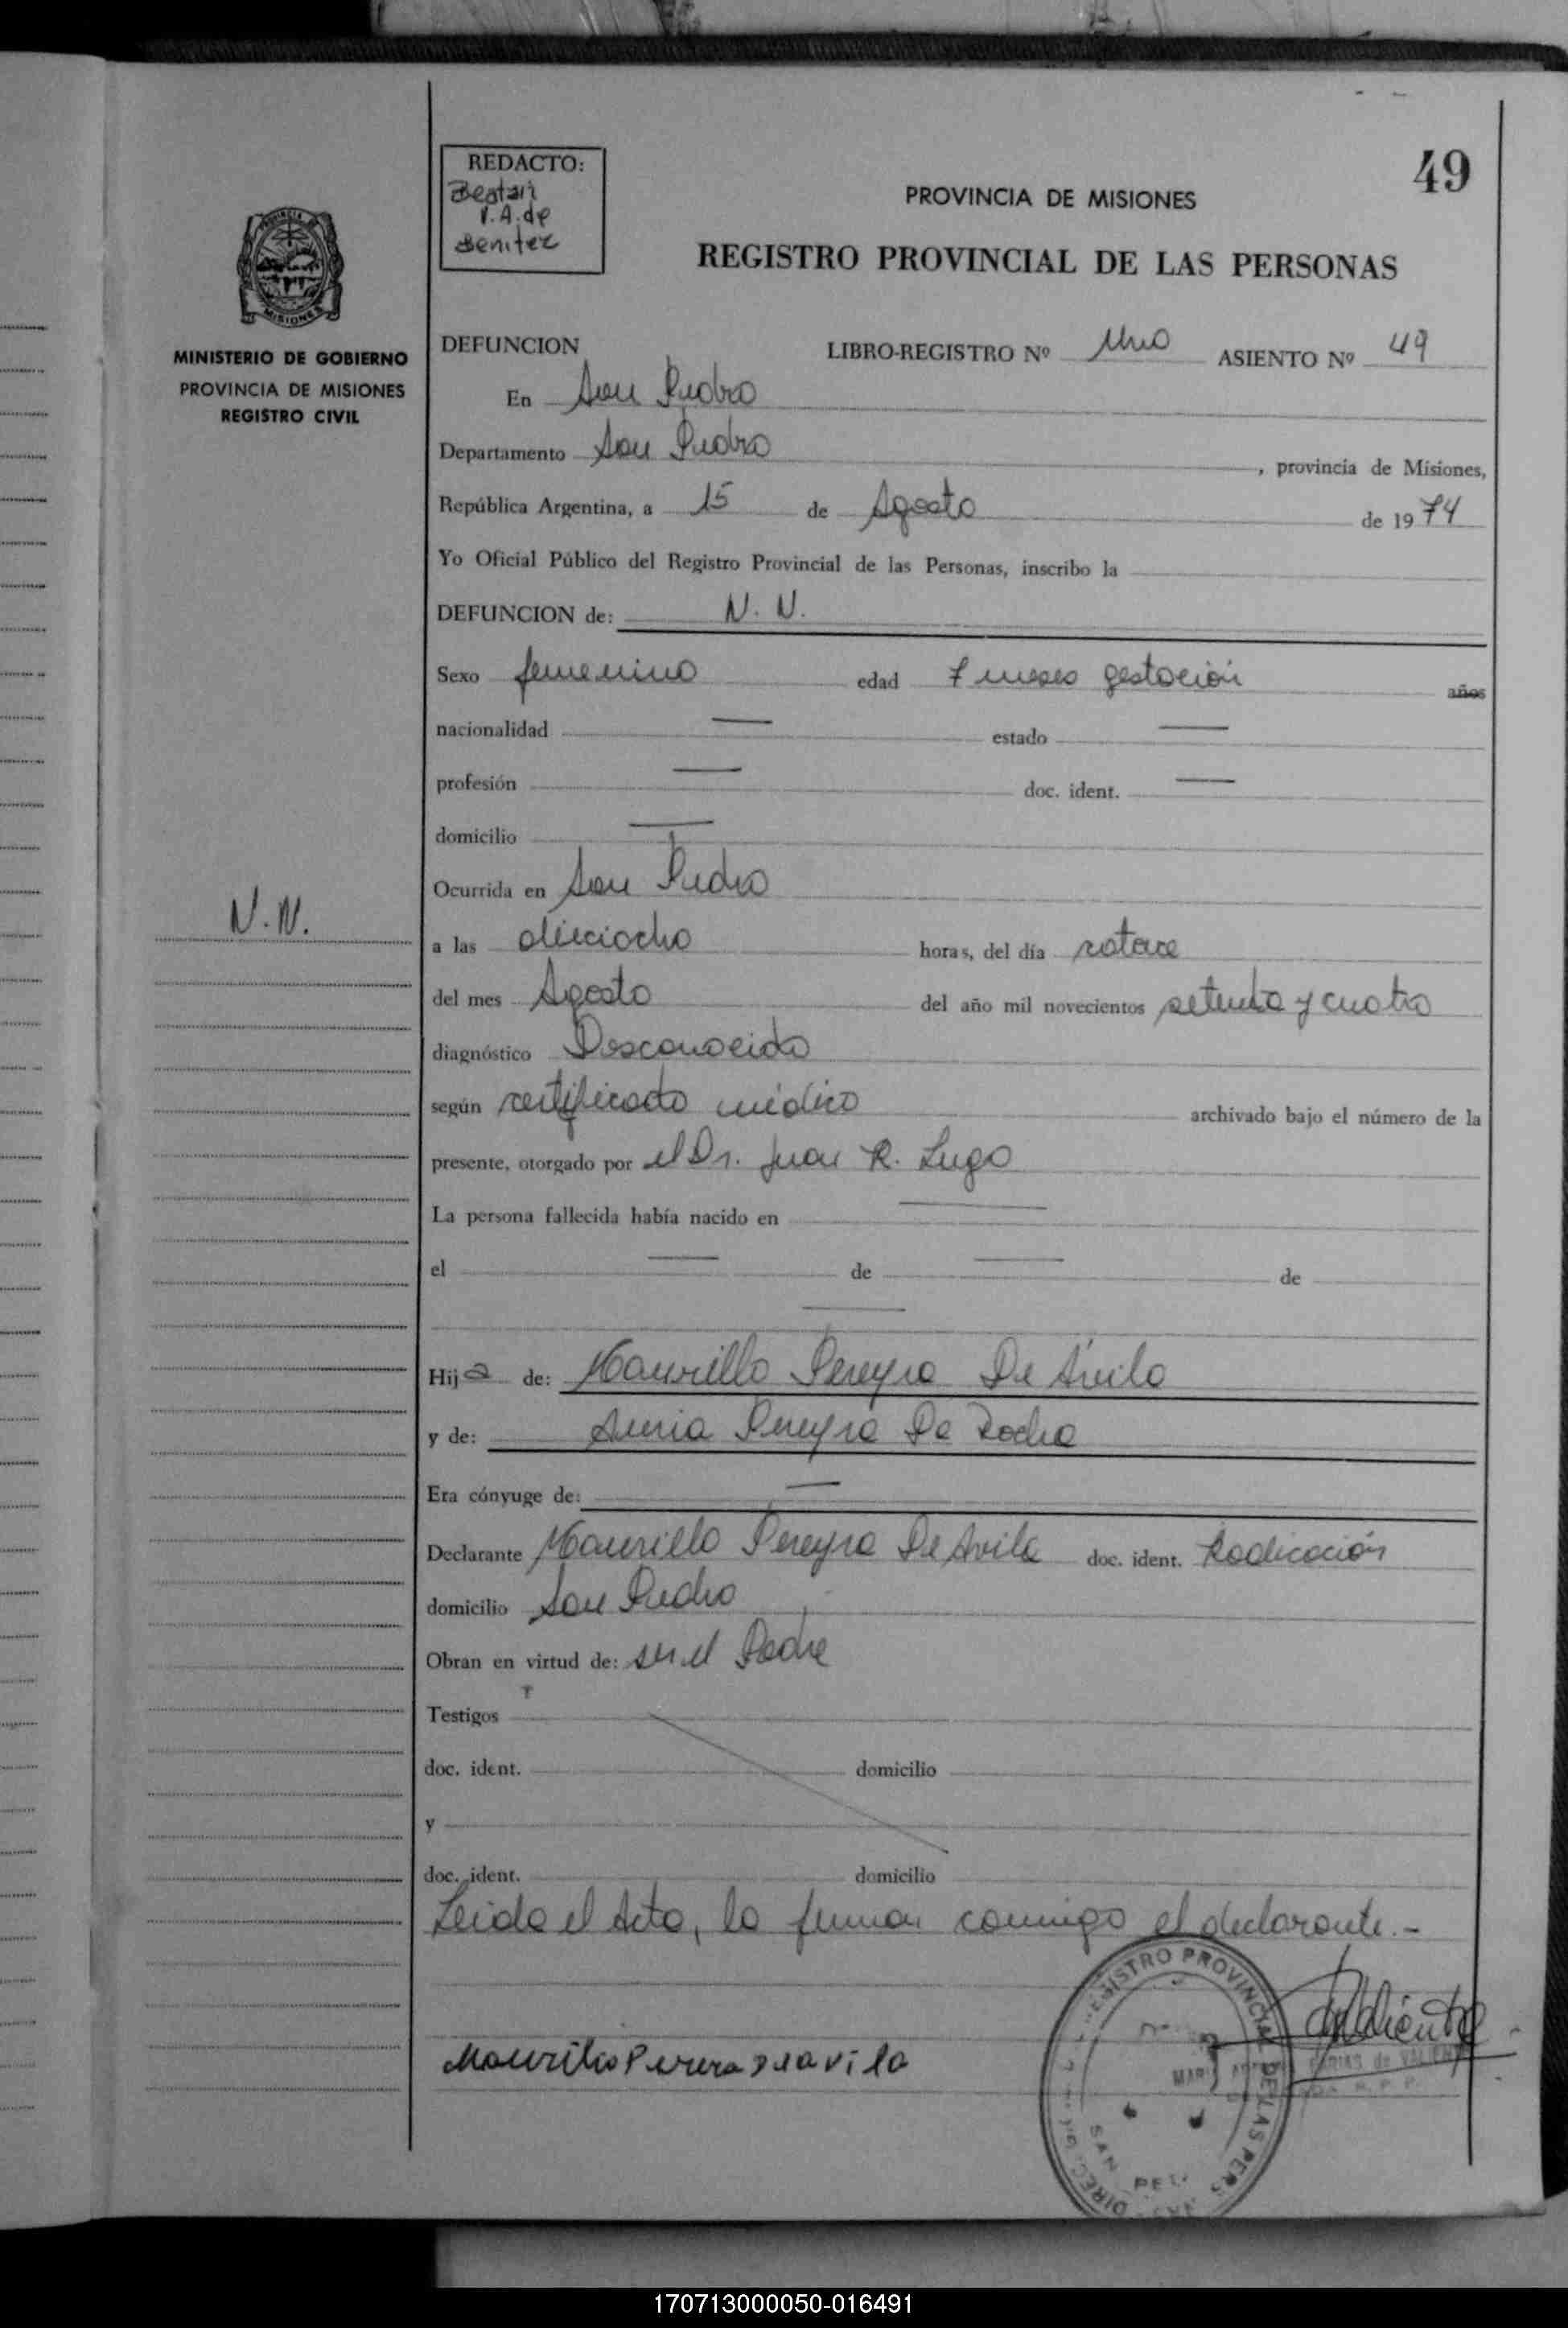 49
REDACTO:
Beatriz
V. A. de
Benitez
PROVINCIA DE MISIONES
REGISTRO PROVINCIAL DE LAS PERSONAS
MISIONES
MINISTERIO DE GOBIERNO
PROVINCIA DE MISIONES
REGISTRO CIVIL
DEFUNCION LIBRO-REGISTRO Nº Uno ASIENTO Nº 49
En San Pedro
Departamento San Pedro, provincia de Misiones,
República Argentina, a 15 de Agosto de 1974
Yo Oficial Público del Registro Provincial de las Personas, inscribo la
DEFUNCION de: N. N.
Sexo femenino edad 7 meses gestación años
nacionalidad — estado —
profesión — doc. ident. —
domicilio —
Ocurrida en San Pedro
N. N.
a las dieciocho horas, del día catorce
del mes Agosto del año mil novecientos setenta y cuatro
diagnóstico Desconocido
según certificado médico archivado bajo el número de la
presente, otorgado por el Dr. Juan R. Lugo
La persona fallecida había nacido en —
el — de — de
—
Hija de: Maurillo Pereyra De Avila
y de: Pereyra Da Rocha
Era cónyuge de: —
Declarante Maurillo Pereyra De Avila doc. ident. Radicación
domicilio San Pedro
Obran en virtud de: ser el Padre
Testigos
doc. ident. domicilio
y
doc. ident. domicilio
Leida el Acta, la firma conmigo el declarante.-
REGISTRO PROVINCIAL DE LAS PERS
SAN PED
DIREC
FARIAS de VALIENTE
170713000050-016491